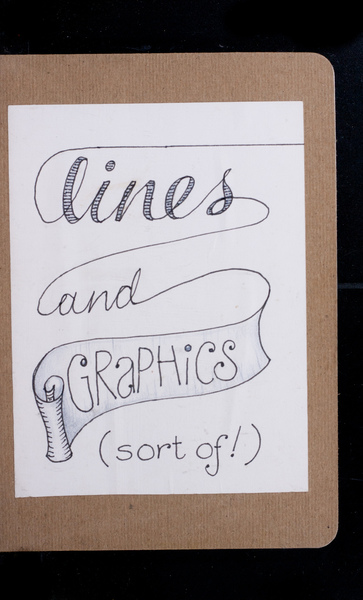 lines
and
GRaPHiCS
(sort of!)